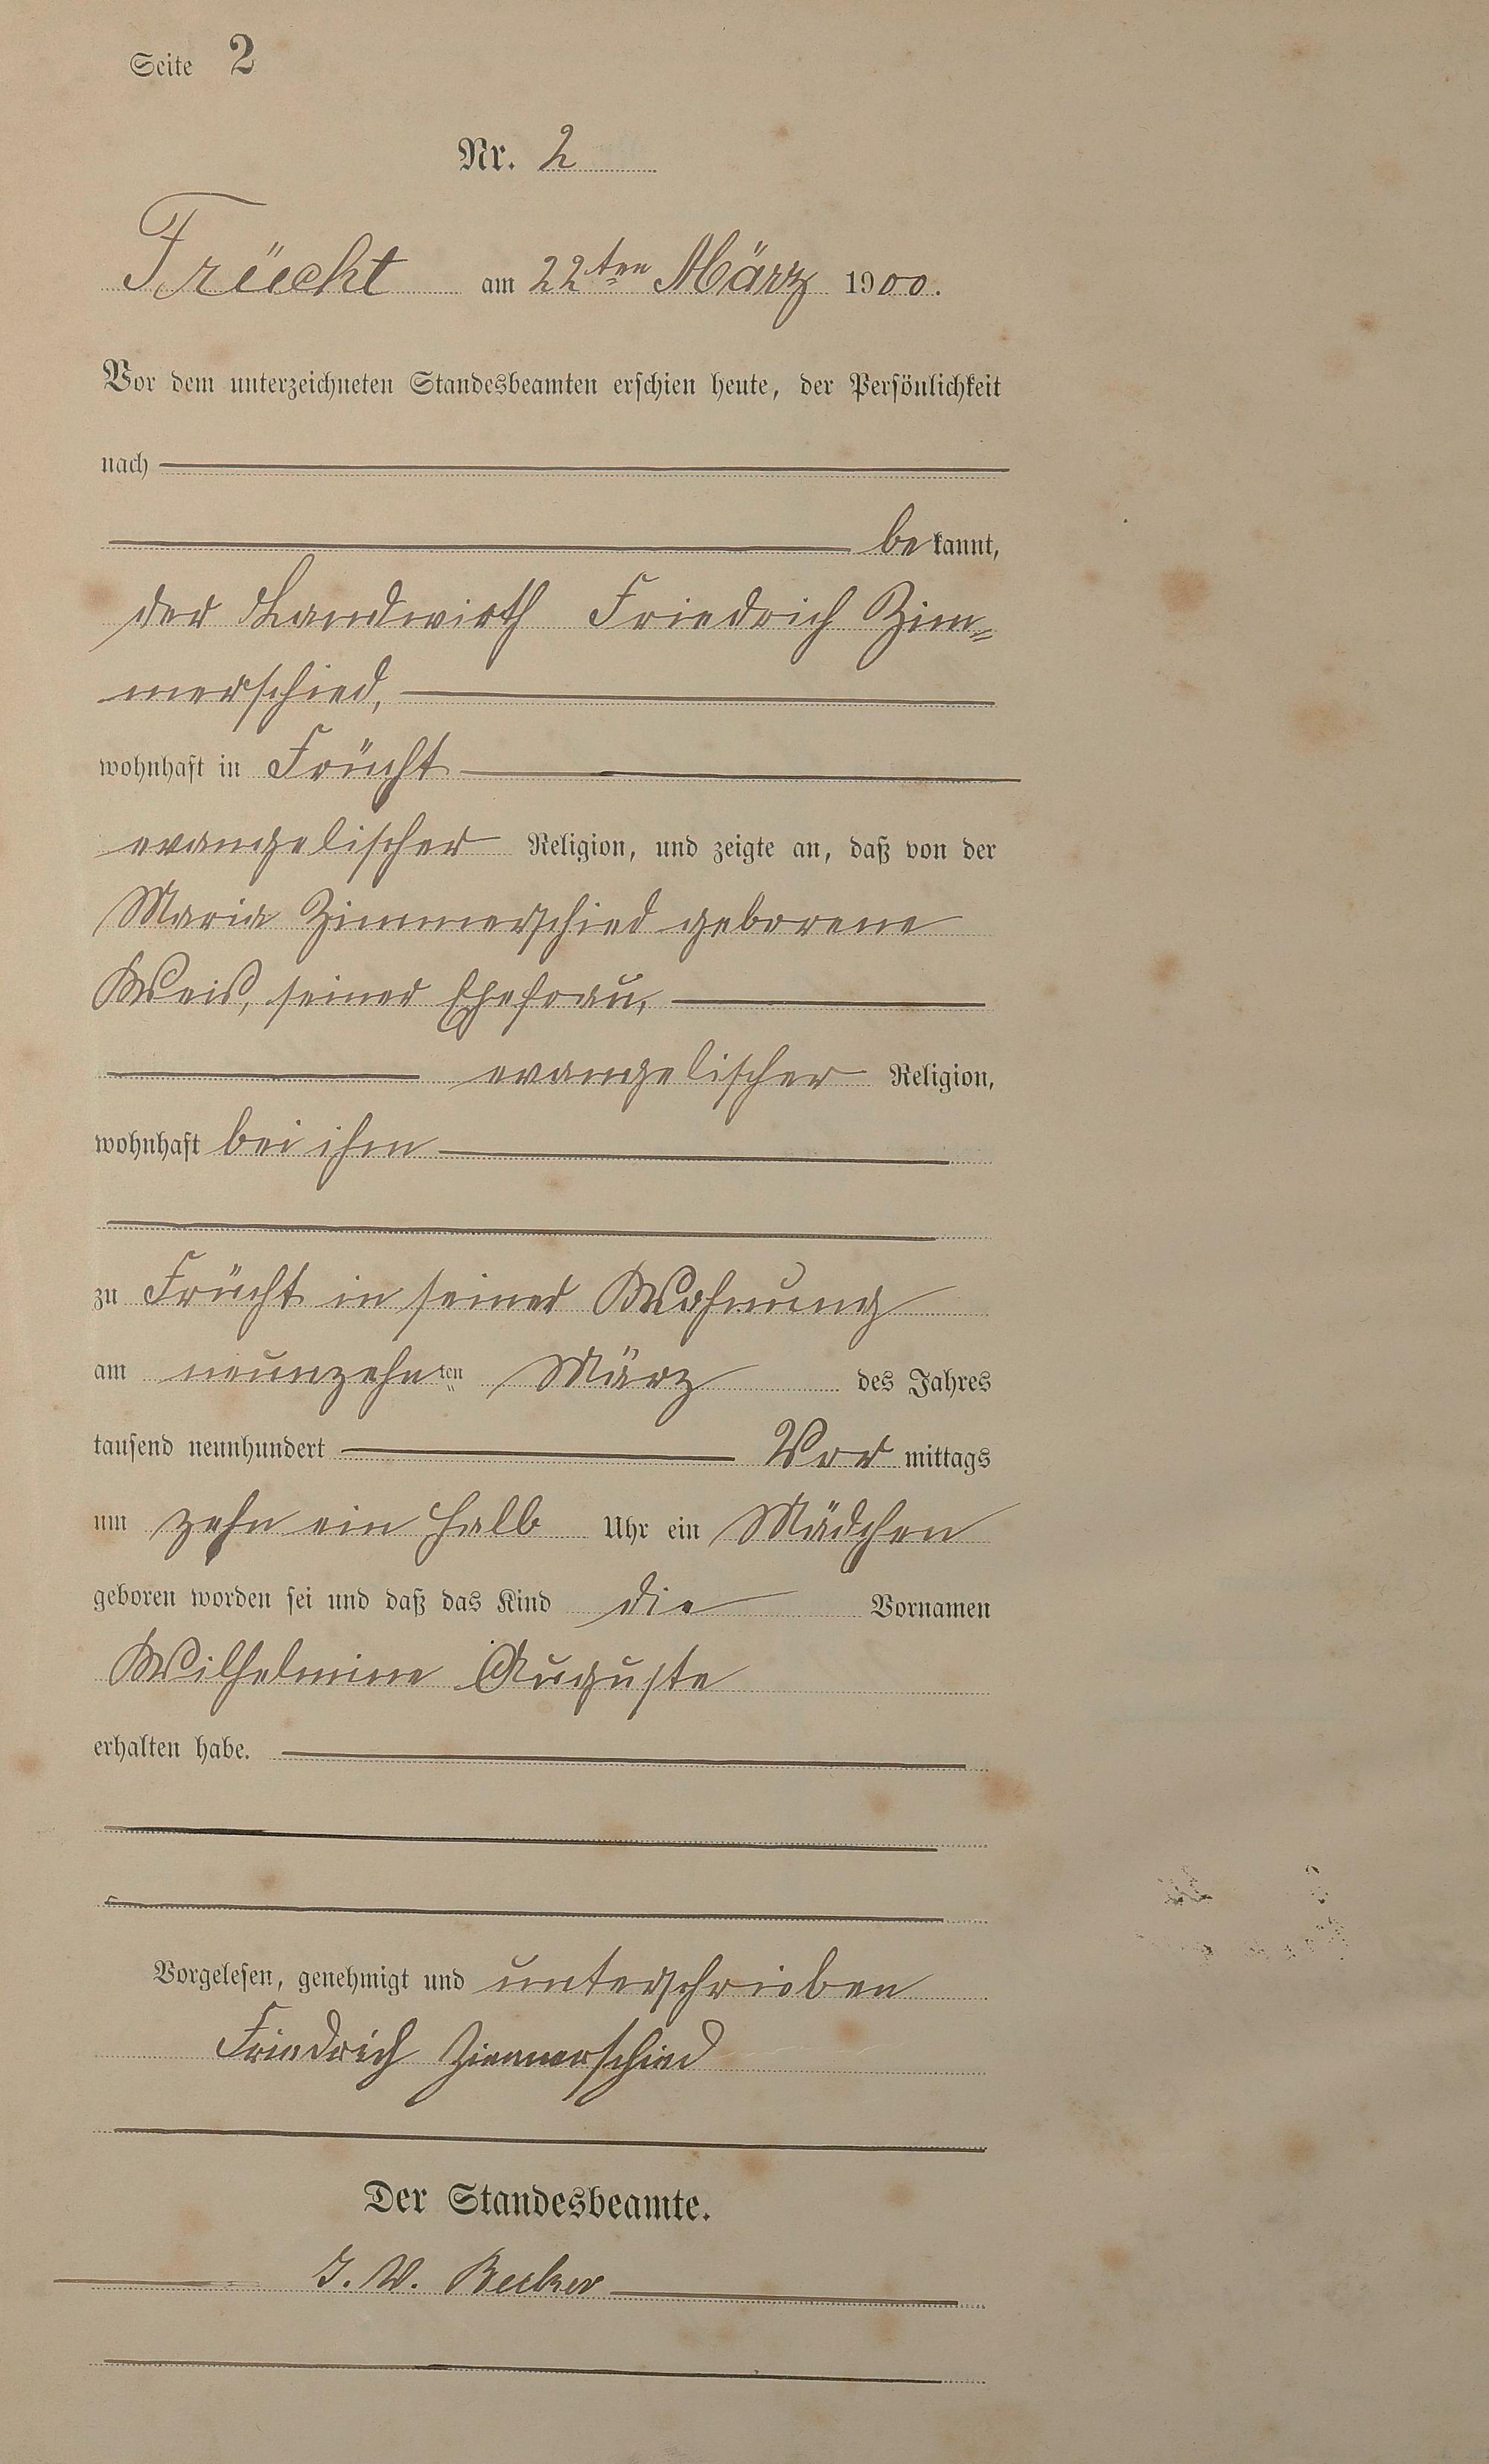 Seite 2
Nr. 2
Frücht am 22ten März 1900.
Vor dem unterzeichneten Standesbeamten erschien heute, der Persönlichkeit
nach
bekannt,
der Landwirth Friedrich Zim=
merschied,
wohnhaft in Frücht
evangelischer Religion, und zeigte an, daß von der
Maria Zimmerschied geborene
Weis, seiner Ehefrau,
evangelischer Religion,
wohnhaft bei ihm
zu Frücht in seiner Wohnung
am neunzehnten März des Jahres
tausend neunhundert Vormittags
um zehn ein halb Uhr ein Mädchen
geboren worden sei und daß das Kind die Vornamen
Wilhelmine Auguste
erhalten habe.
Vorgelesen, genehmigt und unterschrieben
Friedrich Zimmerschied
Der Standesbeamte.
J. W. Becker